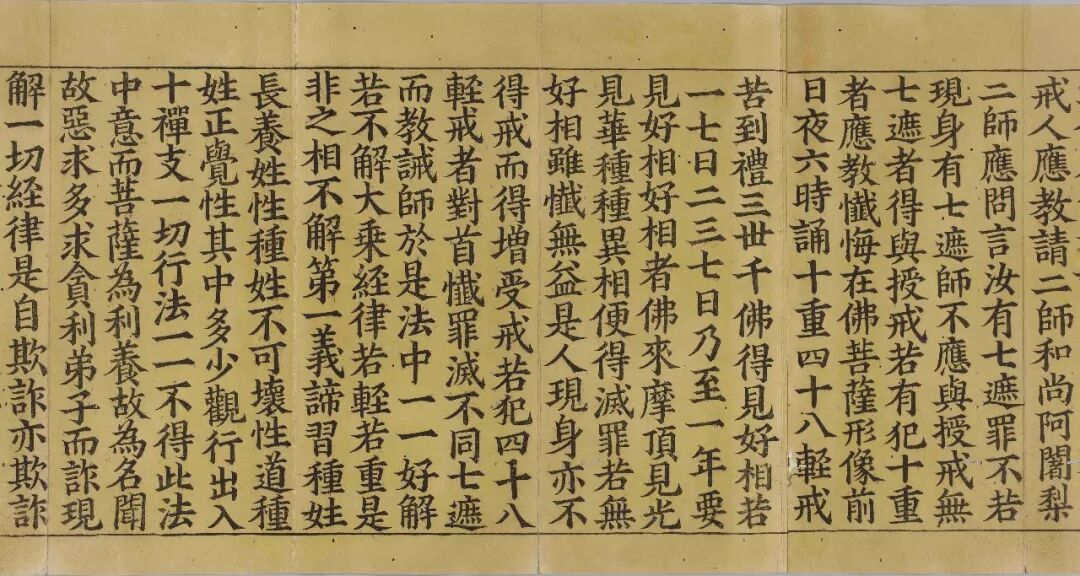 戒人應教請二師和尚阿闍梨
二師應問言汝有七遮罪不若
現身有七遮師不應與授戒無
七遮者得與授戒若有犯十重
者應教懺悔在佛菩薩形像前
日夜六時誦十重四十八軽戒
苦到禮三世千佛得見好相若
一七日二三七日乃至一年要
見好相好相者佛來摩頂見光
見華種種異相便得滅罪若無
好相雖懺無益是人現身亦不
得戒而得增受戒若犯四十八
軽戒者對首懺罪滅不同七遮
而教誡師於是法中一一好解
若不解大乘経律若軽若重是
非之相不解第一義諦習種姓
長養姓性種姓不可壞性道種
姓正覺性其中多少觀行出入
十禪支一切行法一一不得此法
中意而菩薩為利養故為名聞
故惡求多求貪利弟子而詐現
解一切経律是自欺詐亦欺詐